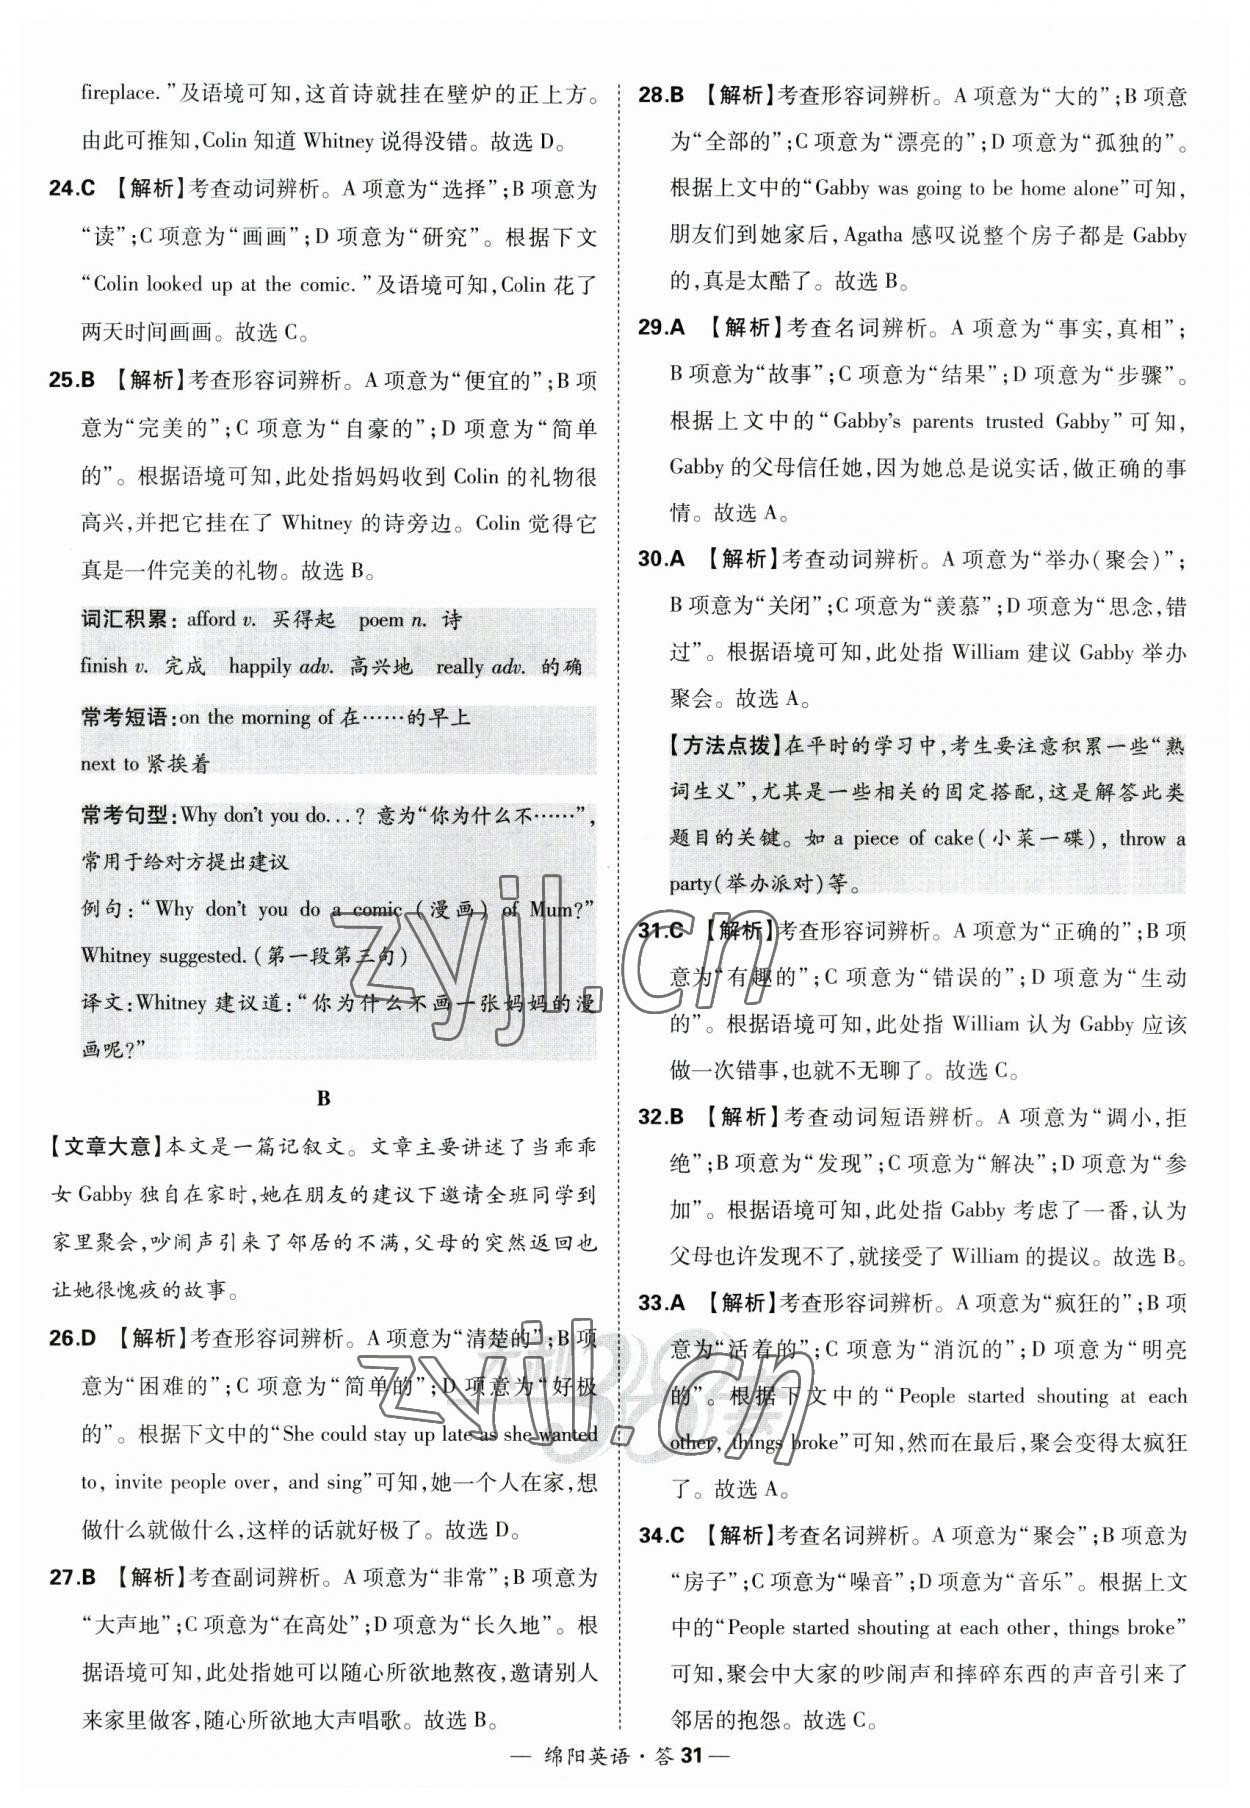 fireplace. ”及语境可知,这首诗就挂在壁炉的正上方。
由此可推知,Colin 知道 Whitney 说得没错。故选 D。
24.C 【解析】考查动词辨析。A 项意为“选择”;B 项意为
“读”;C 项意为“画画”;D 项意为“研究”。根据下文
“Colin looked up at the comic. ”及语境可知,Colin 花了
两天时间画画。故选 C。
25.B 【解析】考查形容词辨析。A 项意为“便宜的”;B 项
意为“完美的”;C 项意为“自豪的”;D 项意为“简单
的”。根据语境可知,此处指妈妈收到 Colin 的礼物很
高兴,并把它挂在了 Whitney 的诗旁边。Colin 觉得它
真是一件完美的礼物。故选 B。
词汇积累: afford v. 买得起 poem n. 诗
finish v. 完成 happily adv. 高兴地 really adv. 的确
常考短语:on the morning of 在……的早上
next to 紧挨着
常考句型:Why don't you do...? 意为“你为什么不……”,
常用于给对方提出建议
例句:“Why don't you do a comic (漫画) of Mum?”
Whitney suggested. (第一段第三句)
译文:Whitney 建议道:“你为什么不画一张妈妈的漫
画呢?”
B
【文章大意】本文是一篇记叙文。文章主要讲述了当乖乖
女 Gabby 独自在家时,她在朋友的建议下邀请全班同学到
家里聚会,吵闹声引来了邻居的不满,父母的突然返回也
让她很愧疚的故事。
26.D 【解析】考查形容词辨析。A 项意为“清楚的”;B 项
意为“困难的”;C 项意为“简单的”;D 项意为“好极
的”。根据下文中的“She could stay up late as she wanted
to, invite people over, and sing”可知,她一个人在家,想
做什么就做什么,这样的话就好极了。故选 D。
27.B 【解析】考查副词辨析。A 项意为“非常”;B 项意为
“大声地”;C 项意为“在高处”;D 项意为“长久地”。根
据语境可知,此处指她可以随心所欲地熬夜,邀请别人
来家里做客,随心所欲地大声唱歌。故选 B。
28.B 【解析】考查形容词辨析。A 项意为“大的”;B 项意
为“全部的”;C 项意为“漂亮的”;D 项意为“孤独的”。
根据上文中的“Gabby was going to be home alone”可知,
朋友们到她家后,Agatha 感叹说整个房子都是 Gabby
的,真是太酷了。故选 B。
29.A 【解析】考查名词辨析。A 项意为“事实,真相”;
B 项意为“故事”;C 项意为“结果”;D 项意为“步骤”。
根据上文中的“Gabby's parents trusted Gabby”可知,
Gabby 的父母信任她,因为她总是说实话,做正确的事
情。故选 A。
30.A 【解析】考查动词辨析。A 项意为“举办(聚会)”;
B 项意为“关闭”;C 项意为“羡慕”;D 项意为“思念,错
过”。根据语境可知,此处指 William 建议 Gabby 举办
聚会。故选 A。
【方法点拨】在平时的学习中,考生要注意积累一些“熟
词生义”,尤其是一些相关的固定搭配,这是解答此类
题目的关键。如 a piece of cake(小菜一碟), throw a
party(举办派对)等。
31.C 【解析】考查形容词辨析。A 项意为“正确的”;B 项
意为“有趣的”;C 项意为“错误的”;D 项意为“生动
的”。根据语境可知,此处指 William 认为 Gabby 应该
做一次错事,也就不无聊了。故选 C。
32.B 【解析】考查动词短语辨析。A 项意为“调小,拒
绝”;B 项意为“发现”;C 项意为“解决”;D 项意为“参
加”。根据语境可知,此处指 Gabby 考虑了一番,认为
父母也许发现不了,就接受了 William 的提议。故选 B。
33.A 【解析】考查形容词辨析。A 项意为“疯狂的”;B 项
意为“活着的”;C 项意为“消沉的”;D 项意为“明亮
的”。根据下文中的“People started shouting at each
other, things broke”可知,然而在最后,聚会变得太疯狂
了。故选 A。
34.C 【解析】考查名词辨析。A 项意为“聚会”;B 项意为
“房子”;C 项意为“噪音”;D 项意为“音乐”。根据上文
中的“People started shouting at each other, things broke”
可知,聚会中大家的吵闹声和摔碎东西的声音引来了
邻居的抱怨。故选 C。
— 绵阳英语·答 31 —
zyjl.cn
zyjl.cn